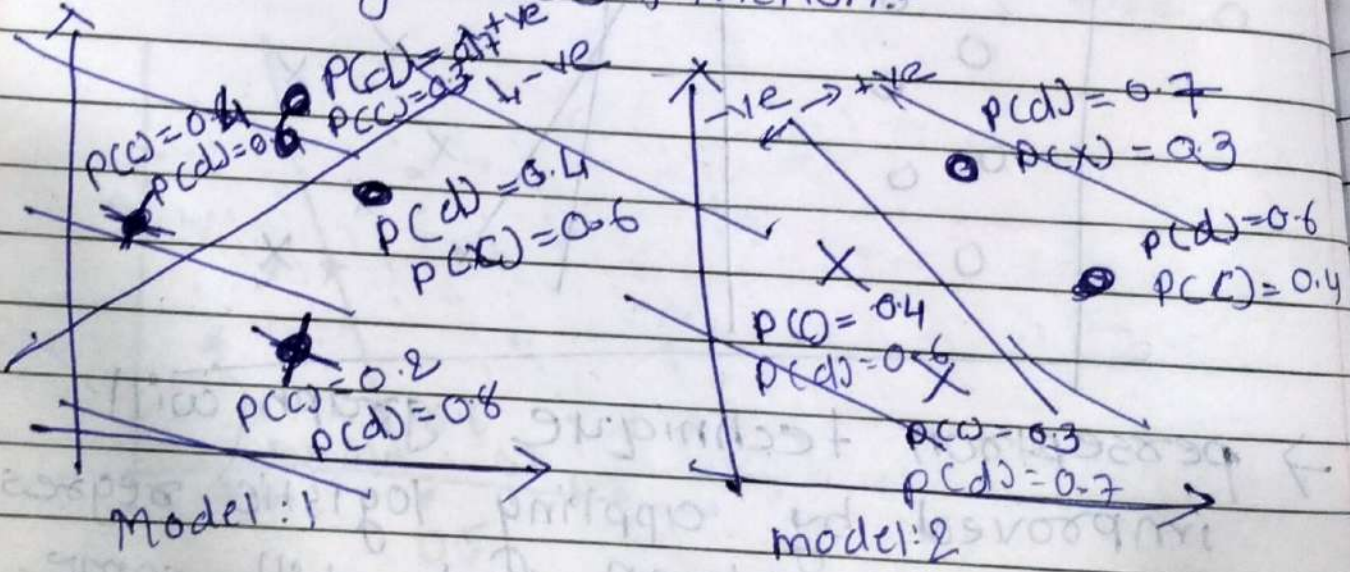 P(d) = 0.7 +ve
P(c) = 0.3 -ve
P(c) = 0.4
P(d) = 0.6
P(d) = 0.4
P(x) = 0.6
P(c) = 0.2
P(d) = 0.8
Model :1
-ve → +ve
P(d) = 0.7
P(x) = 0.3
P(d) = 0.6
P(c) = 0.4
P(c) = 0.4
P(d) = 0.6
P(c) = 0.3
P(d) = 0.7
model:2